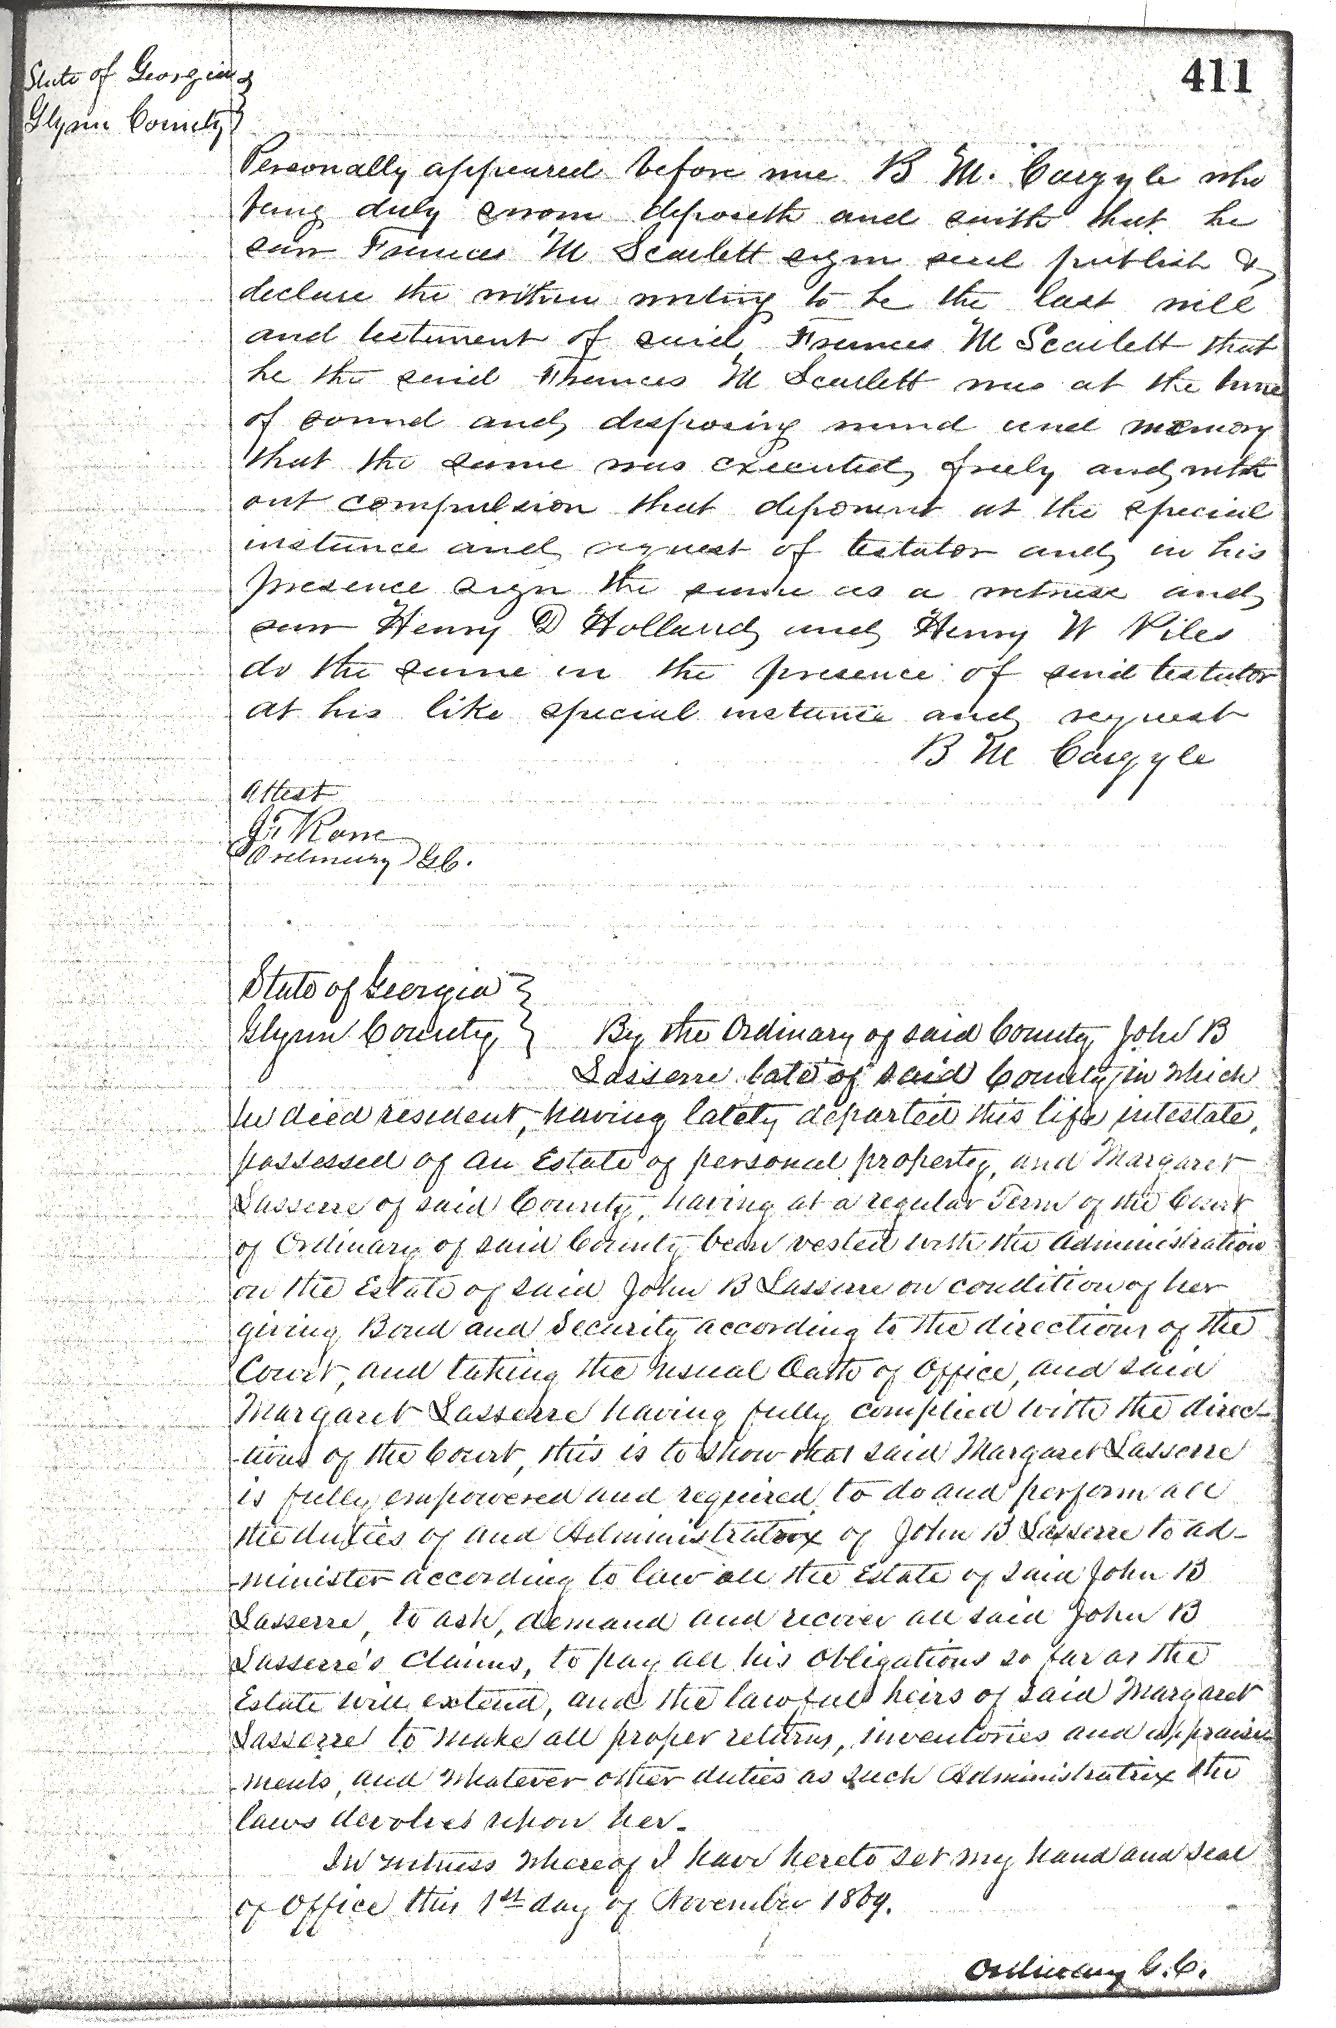 411
State of Georgia
Glynn County
Personally appeared before me B M. Cargyle who
being duly sworn deposeth and saith that he
saw Frances M Scarlett sign seal publish &
declare the within writing to be the last will
and testiment of said Frances M Scarlett that
he the said Frances M Scarlett was at the time
of sound and disposing mind and memory
that the same was executed freely and with
out compulsion that deponent at the special
instance and request of testator and in his
presence sign the same as a witness and
saw Henry D Holland and Henry W Piles
do the same in the presence of said testator
at his like special instance and request
B M Cargyle
Attest
Ordinary G.C.
State of Georgia
Glynn County By the Ordinary of said County John B
Lasserre late of said County in which
he died resident, having lately departed this life intestate,
possessed of an Estate of personal property, and Margaret
Lasserre of said County, having at a regular Term of the Court
of Ordinary of said County been vested with the administration
on the Estate of said John B Lasserre on condition of her
giving Bond and Security according to the directions of the
Court, and taking the usual Oath of Office, and said
Margaret Lasserre having fully complied with the direc-
-tions of the Court, this is to show that said Margaret Lasserre
is fully empowered and required to do and perform all
the duties of and Administratrix of John B Lasserre to ad-
-minister according to law all the Estate of said John B
Lasserre, to ask, demand and recover all said John B
Lasserre's claims, to pay all his obligations so far as the
Estate will extend, and the lawful heirs of said Margaret
Lasserre to make all proper returns, inventories and appraise
-ments, and whatever other duties as such Administratrix the
laws devolves upon her.
In witness whereof I have hereto set my hand and seal
of Office this 1st day of November 1869.
Ordinary G.C.